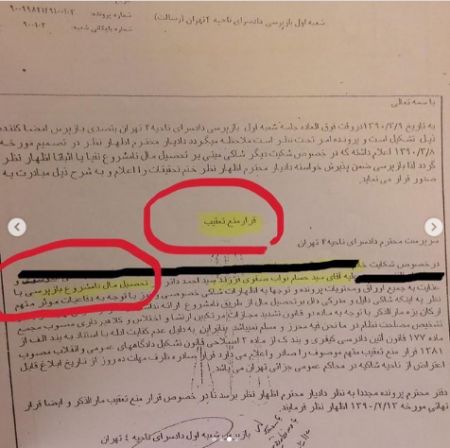 شعبه اول بازپرسی دادسرای ناحیه ۲ تهران (رسالت)
شماره پرونده:
شماره بایگانی شعبه:
باسمه تعالی
به تاریخ ۱۳۹۰/۳/۹ در وقت فوق العاده جلسه شعبه اول بازپرسی دادسرای ناحیه ۲ تهران بتصدی بازپرس امضا کننده
ذیل تشکیل است و پرونده امر تحت نظر است ملاحظه میگردد دادیار محترم اظهار نظر در تصمیم مورخه
۱۳۹۰/۳/۸ اعلام داشته که در خصوص شکایت دیگر شاکی مبنی بر تحصیل مال نامشروع نفیا یا اثباتا اظهار نظر
گردد لذا بازپرسی ضمن پذیرش خواسته دادیار محترم اظهار نظر ختم تحقیقات را اعلام و به شرح ذیل مبادرت به
صدور قرار می نماید
قرار منع تعقیب
سرپرست محترم دادسرای ناحیه ۲ تهران
در خصوص شکایت
علیه آقای سید حسام نواب صفوی فرزند سید احمد
تحصیل مال نامشروع بازپرسی با
عنایت به جمیع اوراق و محتویات پرونده و توجها به اظهارات شاکی خصوصی و با توجه به دفاعیات موثر متهم
نظر به اینکه شاکی دلیل و مدرکی دال بر تحصیل مال از طریق نامشروع ارائه
ارکان بزه مارالذکر با توجه به ماده ۲ قانون تشدید مجازات مرتکبین ارتشاء و اختلاس و کلاهبرداری مصوب مجمع
تشخیص مصلحت نظام در مانحن فیه محرز و مسلم نمیباشد بنابراین به دلیل عدم کفایت ادله با استناد به بند الف از
ماده ۱۷۷ قانون آئین دادرسی کیفری و بند ک از ماده ۳ اصلاحی قانون تشکیل دادگاههای عمومی و انقلاب مصوب
۱۳۸۱ قرار منع تعقیب متهم موصوف را صادر و اعلام می دارد قرار صادره ظرف مهلت ده روز از تاریخ ابلاغ قابل
اعتراض از ناحیه شاکیه در محاکم عمومی جزائی تهران می باشد
دفتر محترم پرونده مجددا به نظر دادیار محترم اظهار نظر برسد تا در خصوص قرار منع تعقیب مارالذکر و ایضا قرار
نهائی مورخه ۱۳۹۰/۲/۱۳ اظهار نظر فرمایند
بازپرس شعبه اول دادسرای ناحیه ۲ تهران